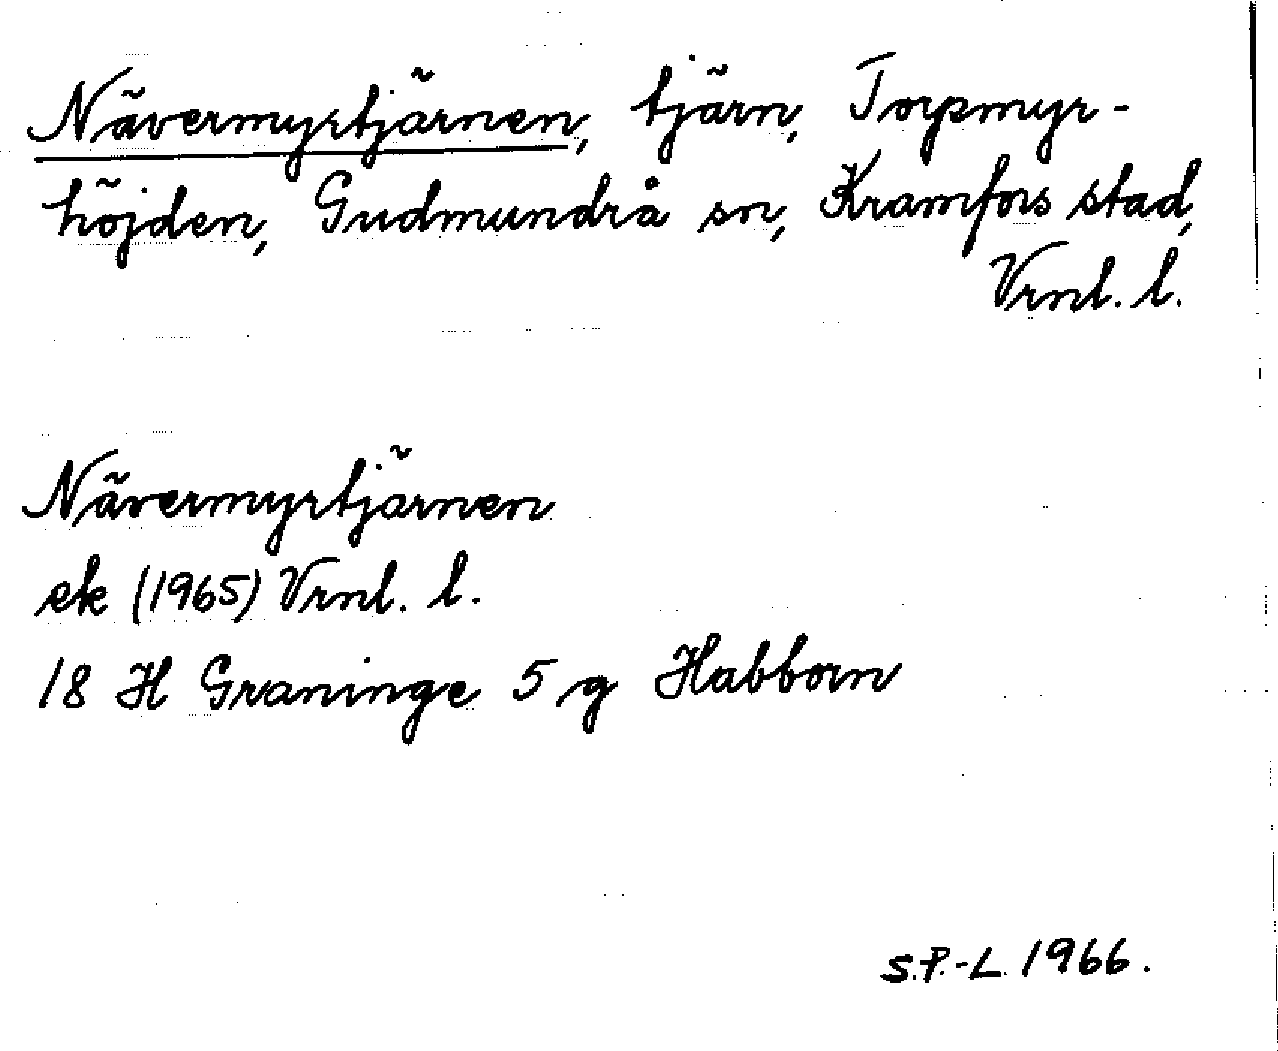 Nävermyrtjärnen, tjärn, Torpmyr-
höjden, Gudmundrå sn, Kramfors stad,
Vrnl. l.
Nävermyrtjärnen
ek (1965) Vrnl. l.
18 H Graninge 5 g Habborn
S.P.-L. 1966.